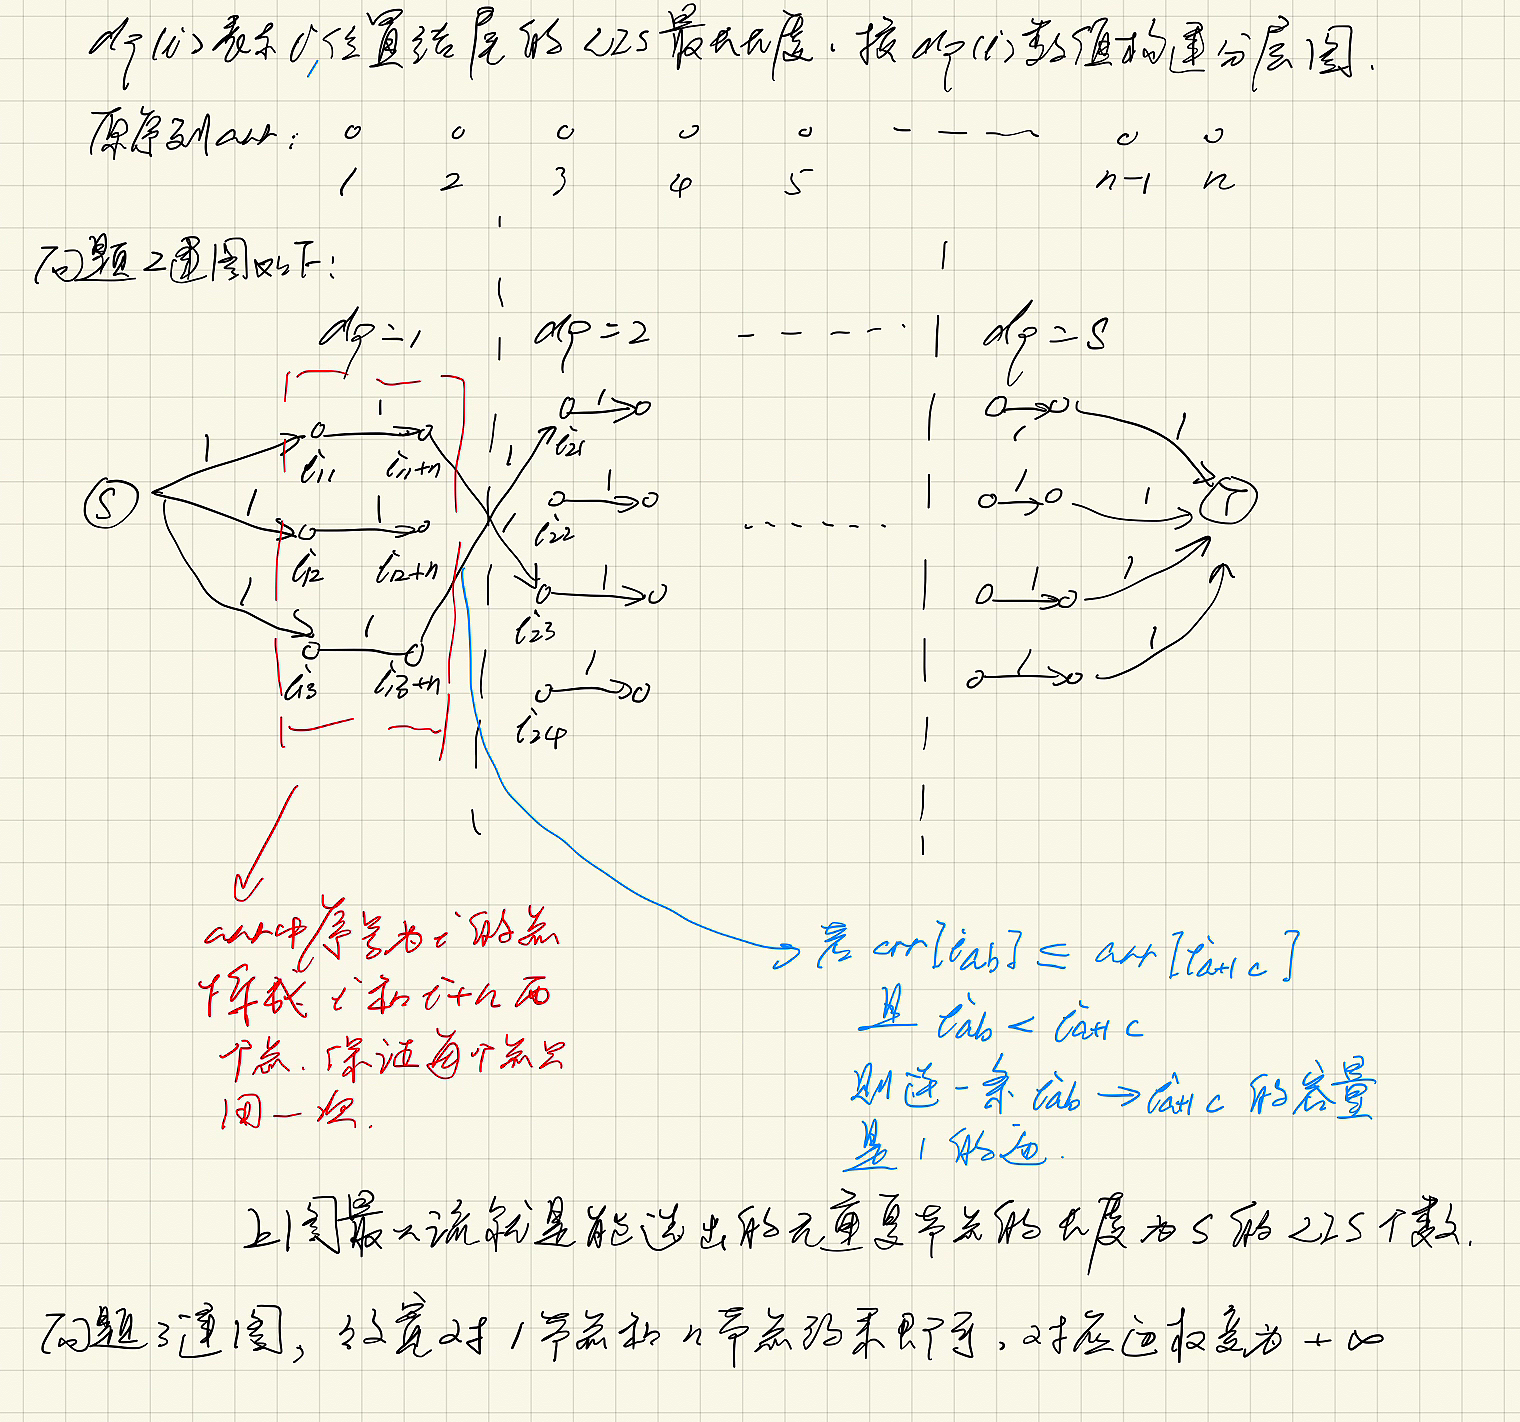 dp(i)表示i位置结尾的LIS最大长度. 按dp(i)数值构建分层图.
原序列arr: 0 0 0 0 0 - - - - 0 0
1 2 3 4 5 n-1 n
问题2建图如下:
dp=1 dp=2 - - - - - dp=S
1 1 1 1
i11 i11+n 1 i21
S 1 1 1 1 1 T
i12 i12+n i22
1 1 1 1 1
i13 i13+n i23
1 1 1
i24
arr中序号为i的点
拆成i和i+n两
个点. 保证每个点只
用一次.
若arr[iab] ≤ arr[ia+1 c]
且 iab < ia+1 c
则连一条 iab → ia+1 c 的容量
是1的边.
上图最大流就是能选出的无重复节点的长度为S的LIS个数.
问题3建图, 放宽对1节点和n节点约束即可, 对应边权变为+∞